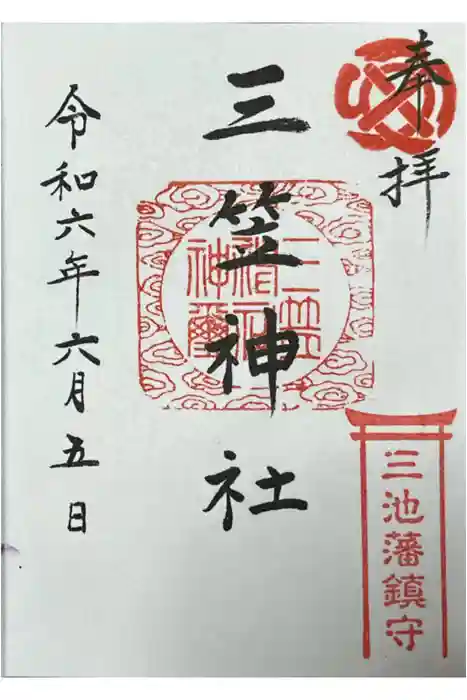 奉拝
三笠神社
三笠神社神璽
三池藩鎮守
令和六年六月五日